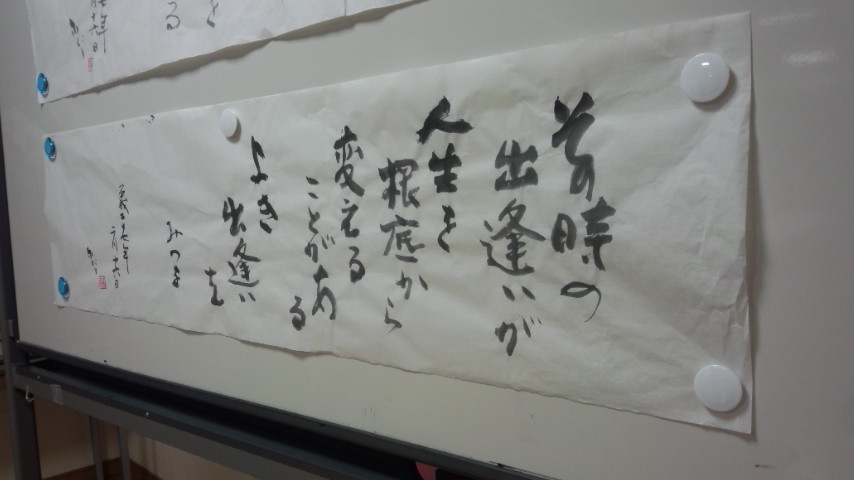 その時の
出逢いが
人生を
根底から
変える
ことがある
よき
出逢いを
みつを